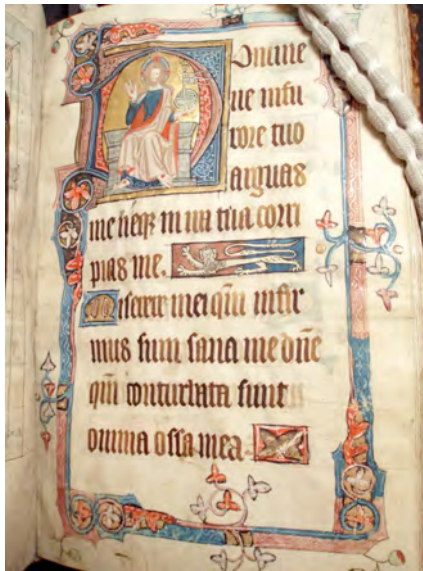 Domine
ne infu
rore tuo
arguas
me neqꝫ in ira tua corri
pias me.
Miserere mei qm̅ infir
mus sum sana me dn̅e
qm̅ conturbata sunt
omnia ossa mea.